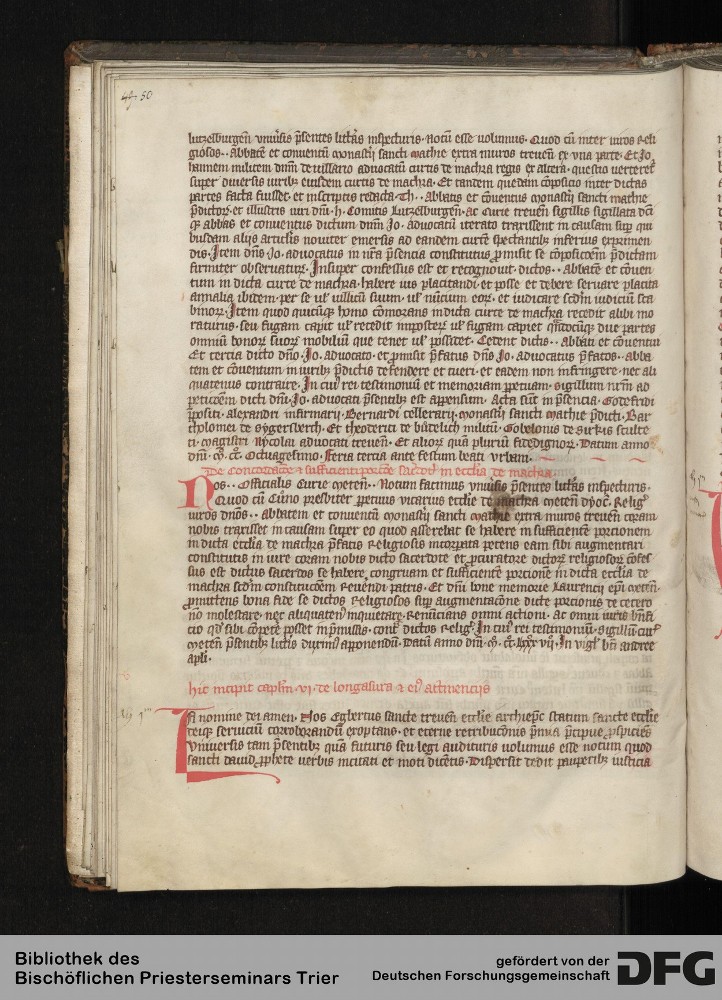 49. 50
lutzelburgen̄ vniu̾sis p̄sentes litt̾as inspecturis. Notū esse uolumus. Quod cū inter uiros Reli
giosos.. abbatē et conuentū monast̾ii sancti mathie extra muros treuen̄ ex vna parte. Et Jo
hannem militem dn̄m de uillario aduocatū curtis de machra regis ex altera. questio uerteret̾
super diuersis iuribȝ eiusdem curtis de machra. Et tandem quedam cōposicio inter dictas
partes facta fuisset. et inscriptis redacta. Th.. Abbatis et cōuentus monast̾ii sancti mathie
p̄dictoꝝ. et illustris uiri dn̄i. h. Comitis Lutzelburgen̄. ac Curie treuen̄ sigillis sigillata dc̄i
ꝙ abbas et conuentus dictum dn̄m Jo. aduocatū iterato traxissent in causam suꝑ qui
busdam alijs articl̾is nouiter emersis ad eandem curtē spectantibȝ inferius exprimen
dis. Item dn̄s Jo. aduocatus in nr̄a p̄sencia constitutus ꝓmisit se cōposicōem p̄dictam
firmiter obseruaturȝ. Insuper confessus est et recognouit. dictos.. abbatē et cōuen
tum in dicta curte de machra. habere ius placitandi. et posse et debere seruare placita
annalia ibidem. per se ul̾ uillicū suum. ul̾ nūcium eoꝝ. et iudicare scd̄m iudiciū sca
binoꝝ. Item quod quicūqȝ homo cōmorans indicta curte de machra recedit alibi mo
raturus. seu fugam capit ul̾ recedit inposterȝ ul̾ fugam capiet qn̄docūqȝ due partes
omniū bonoꝝ suoꝝ mobiliū que tenet ul̾ possidet. Cedent dictis.. abbati et cōuentui
Et tercia dicto dn̄o. Jo. aduocato. et ꝓmisit p̄fatus dn̄s Jo. aduocatus p̄fatos.. abba
tem et cōuentum in iuribȝ p̄dictis defendere et tueri. et eadem non infringere. nec ali
quatenus contraire. In cui̾ rei testimoniū et memoriam ꝑpetuam. sigillum nr̄m ad
peticōem dicti dn̄i. Jo. aduocati p̄sentibȝ est appensum. Acta sūt in p̄sencia. Godefridi
ꝓpositi. alexandri infirmarij. Bernardi cellerarij. monast̾ii sancti mathie p̄dicti. Bar
tholomei de sygersberch. Et theoderici de bůrelich militū. Gobelonis de sirkis sculte
ti. magistri Nycolai aduocati treuen̄. Et alioꝝ quā plurȳ fidedignoꝝ. Datum anno
dn̄i. M̊. C̊C̊. Octuagesimo. Feria tercia ante festum beati vrbani.
De Concordacōe et sufficienti porcōne sacerd̾ in ecclīa de machra.
Nos.. Officialis Curie meten̄.. Notum facimus vniu̾sis p̄sentes litt̾as inspecturis.
Quod cū Cūno presbiter ꝑpetuus vicarius ecclīe de machra meten̄ dyoc̾. Relig̾
uiros dn̄os.. abbatem et conuentū monast̾ii sancti mathie extra muros treuen̄ coram
nobis traxisset in causam super eo quod asserebat se habere in sufficientē porcionem
in dicta ecclīa de machra p̄fatis Religiosis incorꝑata petens eam sibi augmentari
constitutis in iure coram nobis dicto sacerdote et ꝓcuratore dictoꝝ religiosoꝝ cōfes
sus est dictus sacerdos se habere congruam et sufficientē porcionē in dicta ecclīa de
machra scd̄m constitucōem Reuendi patris. Et dn̄i bone memorie Laurencij epī meten̄.
ꝓmittens bona fide se dictos Religiosos suꝑ augmentacōne dicte porcionis de cetero
nō molestare. nec aliquatenꝰ inquietare. Renūcians omni actioni. ac omni iuris bn̄fi
cio qd̾ sibi cōpete posset in p̄missis. cont̾ dictos Relig̾. In cui̾ rei testimoniū. sigillū cur̾
meten̄ p̄sentibȝ litt̾is duximꝰ apponendū. Datū anno dn̄i. M̊. C̊C̊. Lxxx vij. In vigl̾ bn̄ andree
apl̾i.
hic incipit capl̾m. vi. de longasura et ei̾ attinencijs
In nomine dei amen. Nos Egbertus sancte treuen̄ ecclīe archiep̄c statum sancte ecclīe
deiqȝ seruiciū corroborandū exoptans. et eterne retribucōnis p̄mia p̄cipue ꝓspiciēs
Vniuersis tam p̄sentibȝ quā futuris seu legi audituris uolumus esse notum quod
sancti dauid ꝓphete uerbis incitati et moti dicētis. Dispersit dedit pauperibȝ iusticia
Bibliothek des
Bischöflichen Priesterseminars Trier
gefördert von der
Deutschen Forschungsgemeinschaft
DFG